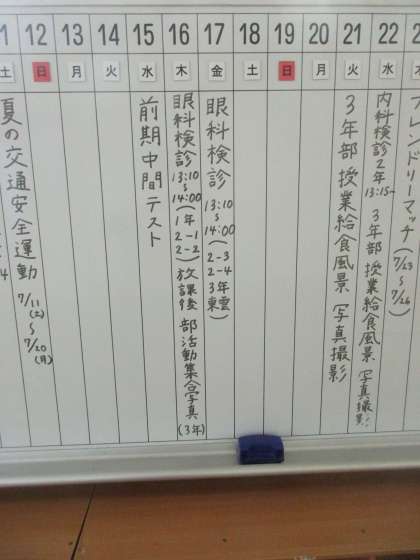 12 13 14 15 16 17 18 19 20 21 22
土 日 月 火 水 木 金 土 日 月 火 水
夏の交通安全運動 7/11(土)〜7/20(月)
前期中間テスト
眼科検診 13:10〜14:00(1年 2-1 2-2) 放課後 部活動集合写真(3年)
眼科検診 13:10〜14:00(2-3 2-4 3年 東雲)
3年部 授業給食風景 写真撮影
内科検診2年 13:15〜 3年部 授業給食風景 写真撮影
フレンドリーマッチ(7/23〜7/26)